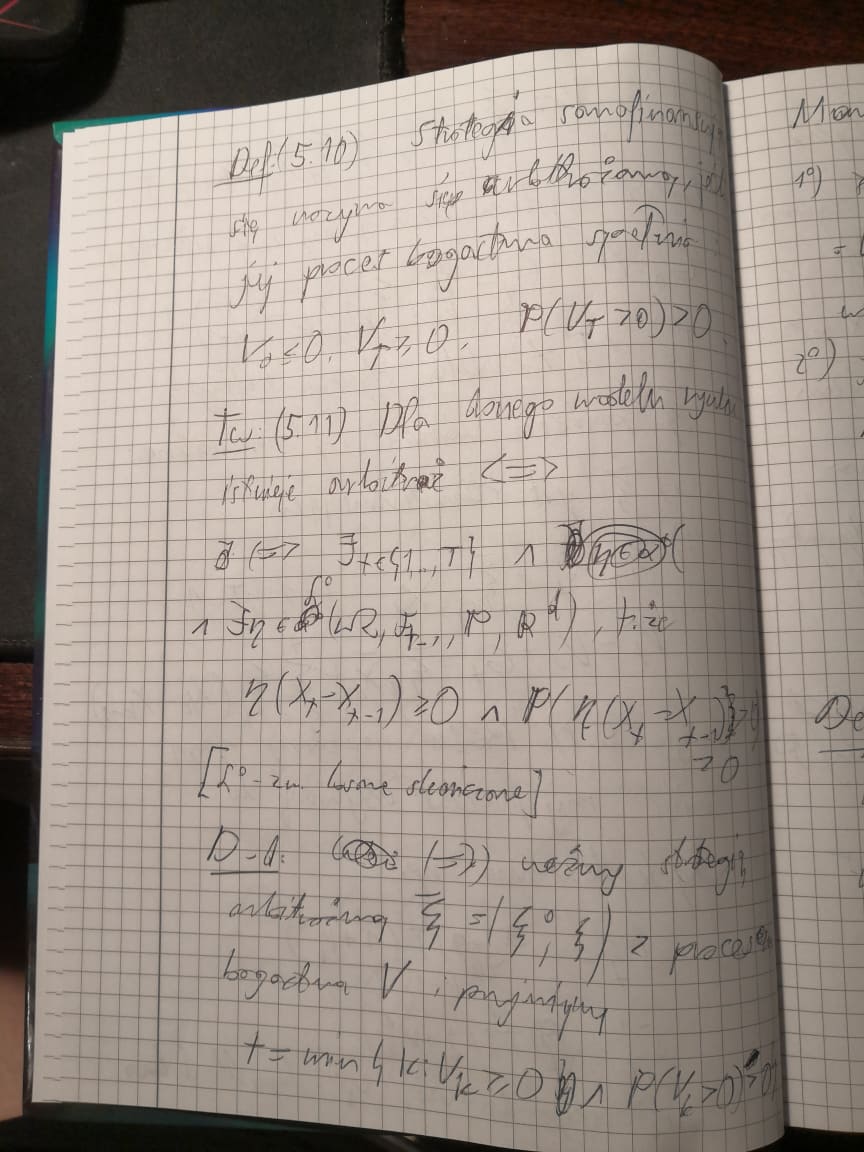 Def. (5.10) Strategia samofinansują
się nazywa się arbitrażową, jeśl
jej proces bogactwa spełnia
V₀ ≤ 0, V_T ≥ 0, P(V_T > 0) > 0
Tw. (5.11) Dla danego modelu rynku
istnieje arbitraż <=>
<=> ∃ t∈{1,..,T} ∧
∧ ∃ η ∈ L⁰(Ω, F_{t-1}, P, R^d), t.że
η(X_t - X_{t-1}) ≥ 0 ∧ P(η(X_t - X_{t-1}) > 0) > 0
[L⁰ - zm. losowe skończone]
D-d: (=>) weźmy strategię
arbitrażową ξ̄ = (ξ⁰, ξ) z procesem
bogactwa V i przyjmijmy
t = min{k: V_k ≥ 0 ∧ P(V_k > 0) > 0}
Mon
1°)
=
w
2°)
De